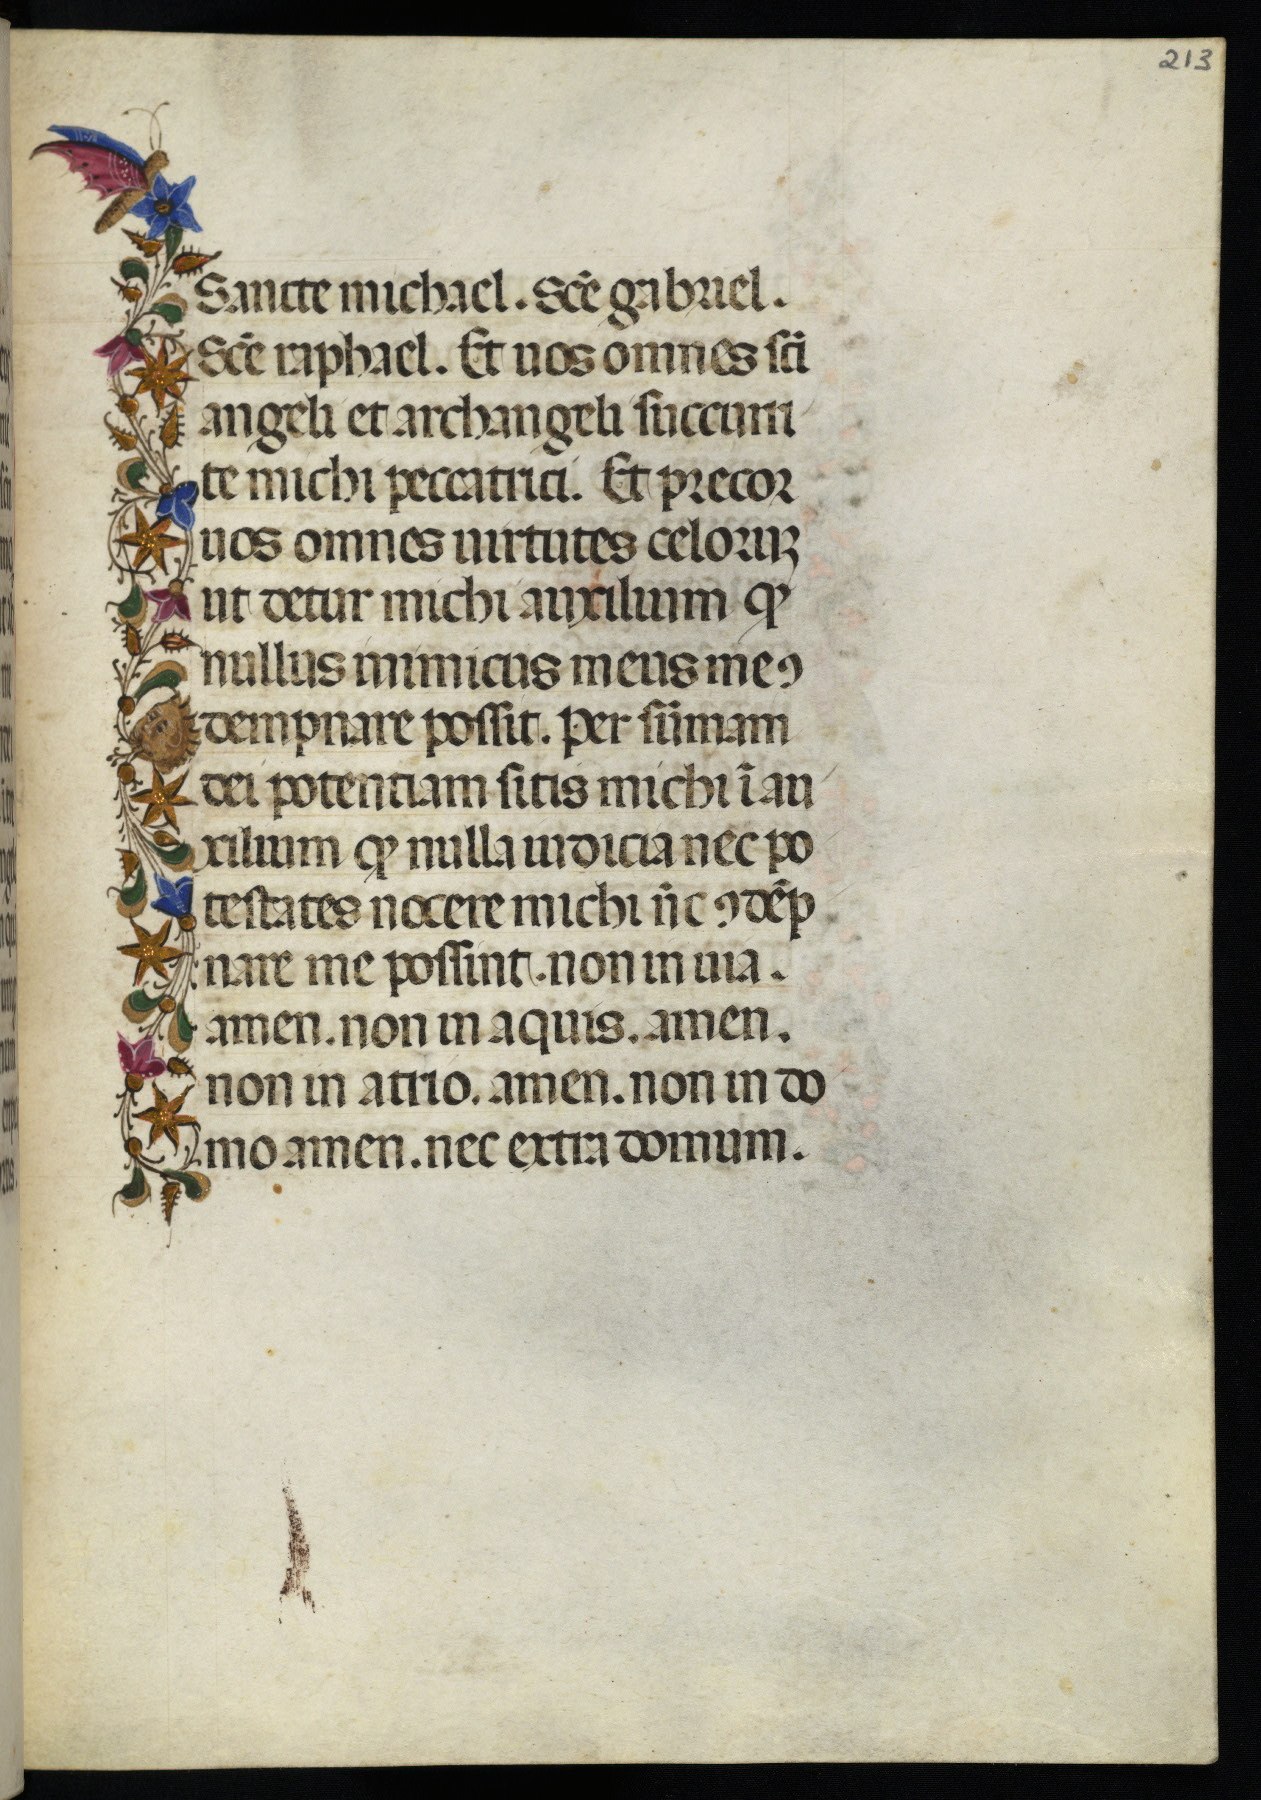 213
Sancte michael. Sc̄e gabriel.
Sc̄e raphael. Et uos omnes sc̄i
angeli et archangeli succurri
te michi peccatrici. Et precor
uos omnes uirtutes celoꝝ
ut detur michi auxilium ꝙ
nullus inimicus meus me ꝯ
dempnare possit. Per sūmam
dei potentiam sitis michi ī au
xilium ꝙ nulla iudicia nec po
testates nocere michi n̄c ꝯdēp
nare me possint. non in uia.
amen. non in aquis. amen.
non in atrio. amen. non in do
mo amen. nec extra domum.